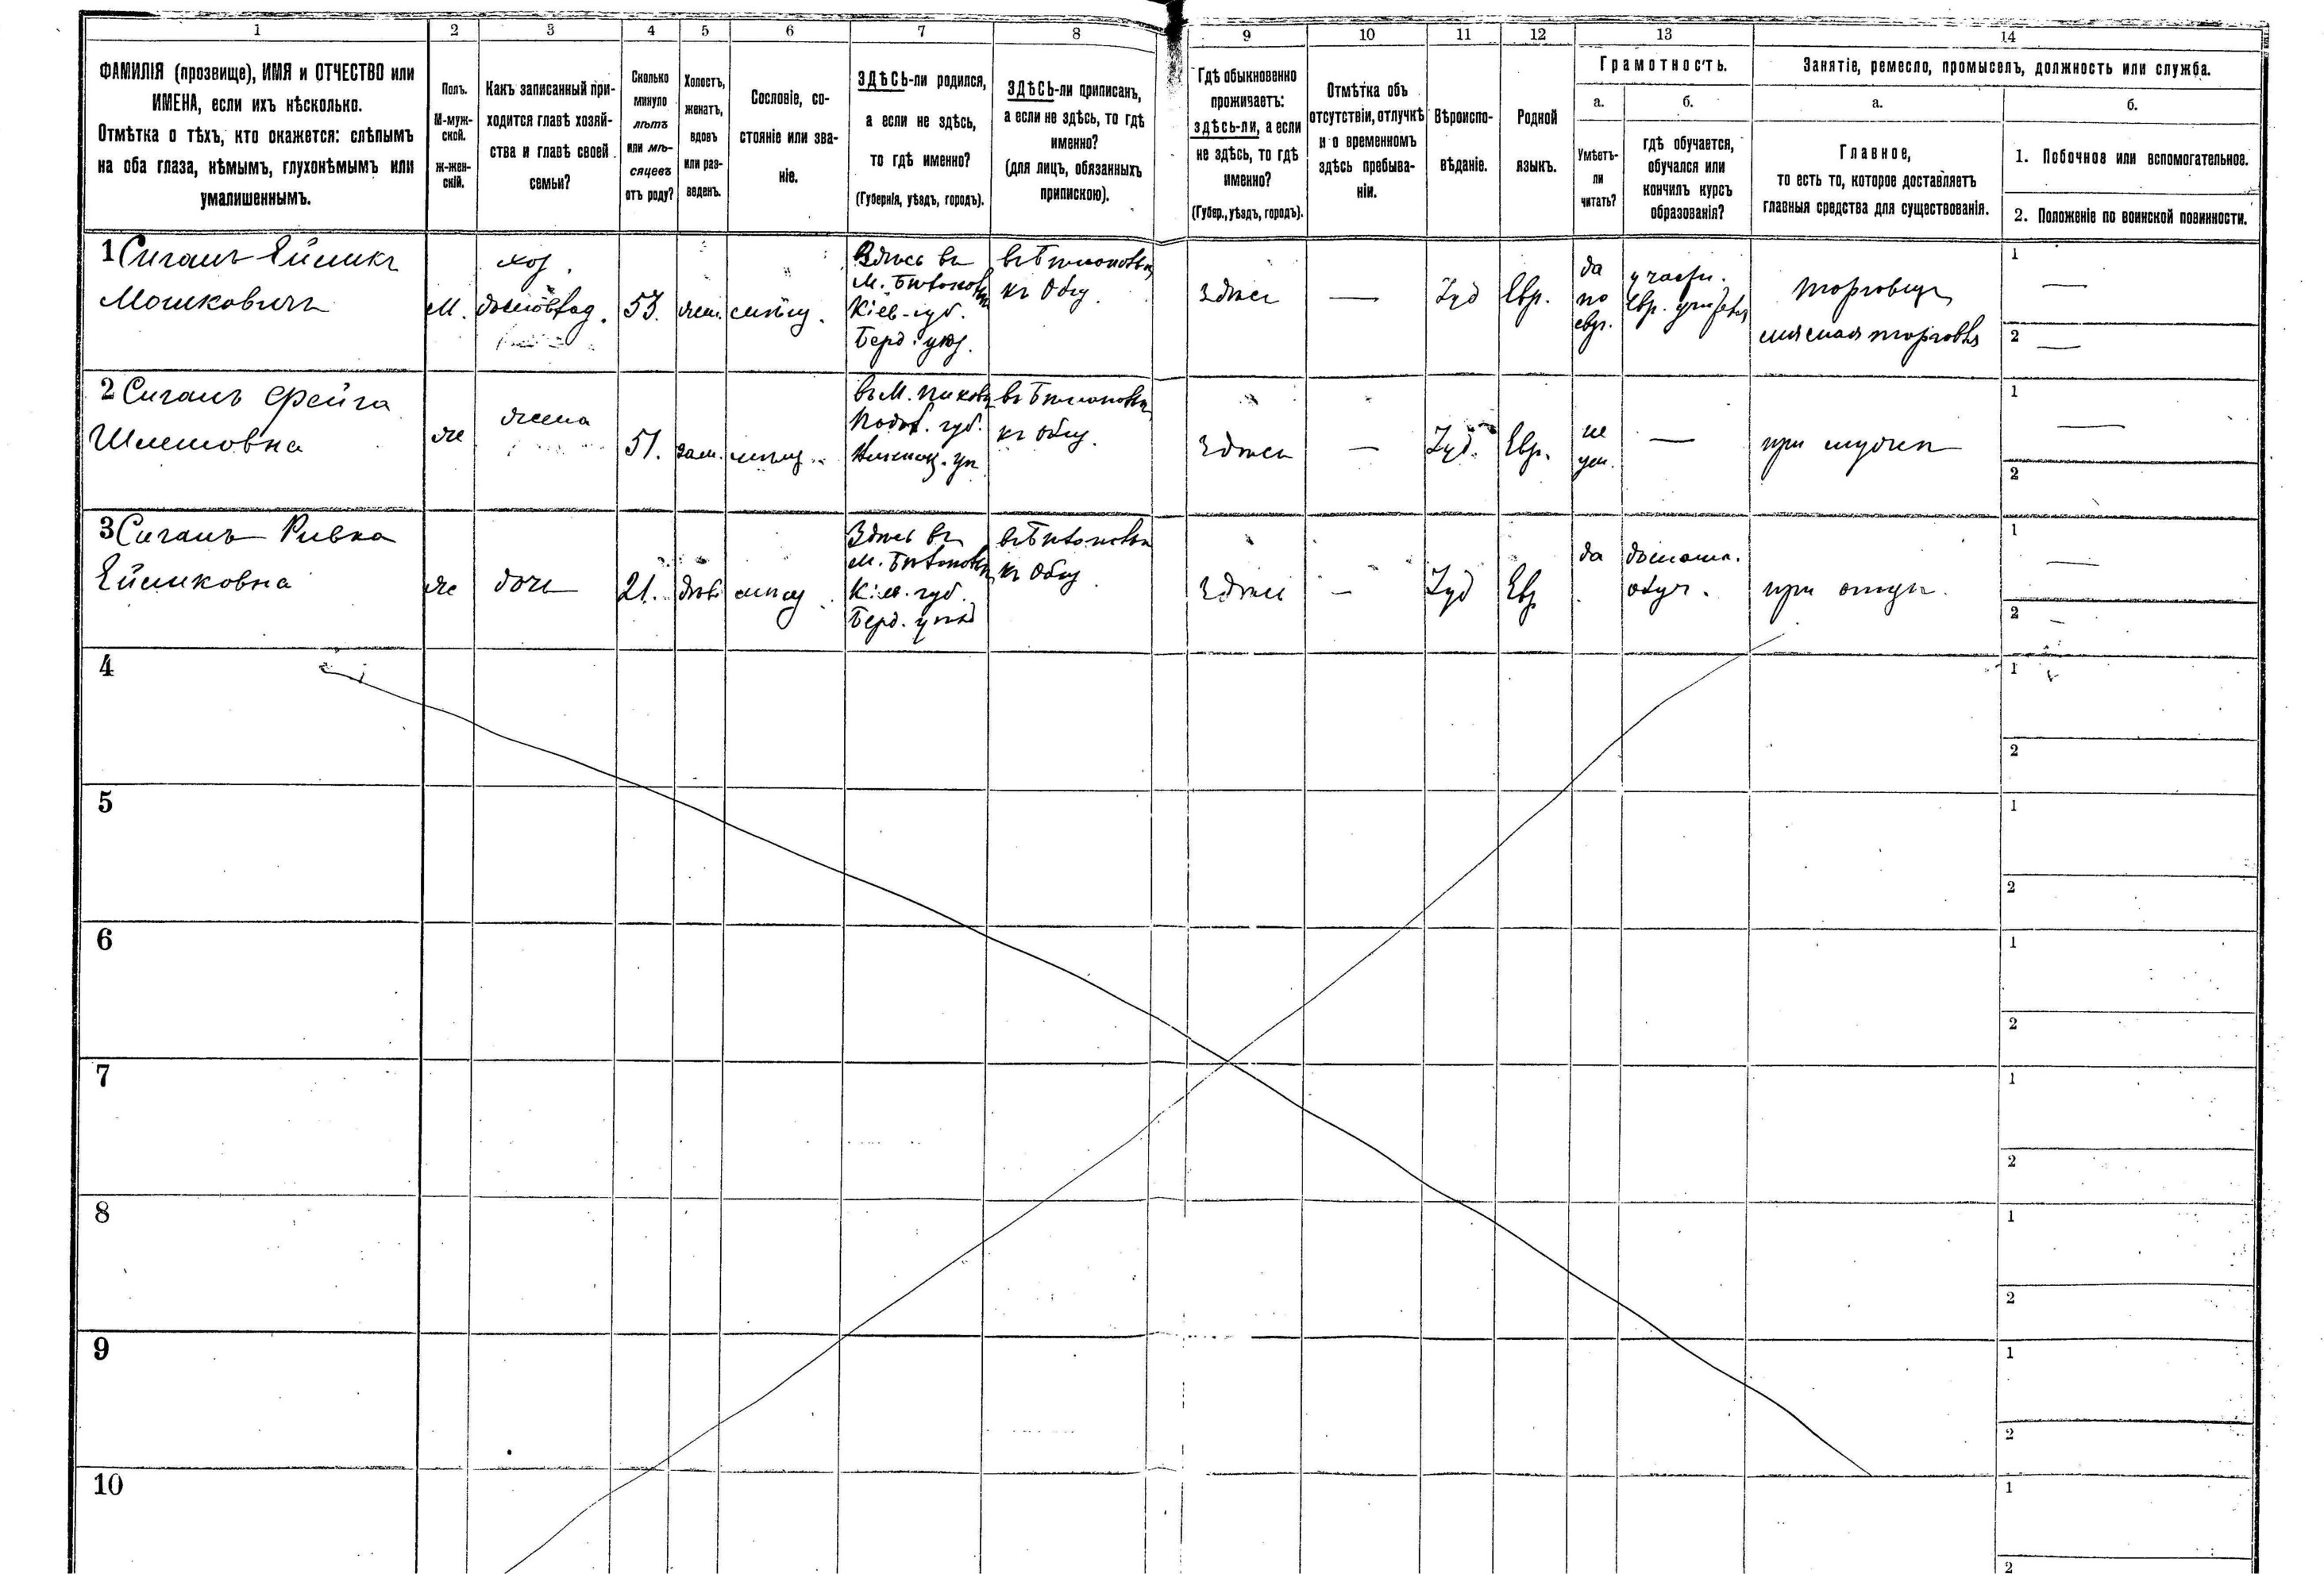 1 2 3 4 5 6 7 8 9 10 11 12 13 14
ФАМИЛІЯ (прозвище), ИМЯ и ОТЧЕСТВО или
ИМЕНА, если ихъ нѣсколько.
Отмѣтка о тѣхъ, кто окажется: слѣпымъ
на оба глаза, нѣмымъ, глухонѣмымъ или
умалишеннымъ.
Полъ.
М-муж-
ской.
ж-жен-
скій.
Какъ записанный при-
ходится главѣ хозяй-
ства и главѣ своей
семьи?
Сколько
минуло
лѣтъ
или мѣ-
сяцевъ
отъ роду?
Холостъ,
женатъ,
вдовъ
или раз-
веденъ.
Сословіе, со-
стояніе или зва-
ніе.
ЗДѢСЬ-ли родился,
а если не здѣсь,
то гдѣ именно?
(Губернія, уѣздъ, городъ).
ЗДѢСЬ-ли приписанъ,
а если не здѣсь, то гдѣ
именно?
(для лицъ, обязанныхъ
припискою).
Гдѣ обыкновенно
проживаетъ:
здѣсь-ли, а если
не здѣсь, то гдѣ
именно?
(Губер., уѣздъ, городъ).
Отмѣтка объ
отсутствіи, отлучкѣ
и о временномъ
здѣсь пребыва-
ніи.
Вѣроиспо-
вѣданіе.
Родной
языкъ.
Грамотность.
а.
Умѣетъ-
ли
читать?
б.
гдѣ обучается,
обучался или
кончилъ курсъ
образованія?
Занятіе, ремесло, промыселъ, должность или служба.
а.
Главное,
то есть то, которое доставляетъ
главныя средства для существованія.
б.
1. Побочное или вспомогательное.
2. Положеніе по воинской повинности.
1 Сиганъ Ейшикъ
Мошковичъ
М.
хоз.
53.
жен.
Здѣсь въ
Кіев. губ.
Берд. уѣз.
къ Общ.
Здѣсь
—
Іуд
Евр.
да
по
евр.
у частн.
Евр. учителя
Торговецъ
мясная торговля
1 —
2 —
2 Сиганъ Фейга
Шлемовна
же
жена
51.
зам.
мѣщ.
въ М. Пиковъ
Подол. губ.
къ общ.
Здѣсь
—
Іуд.
Евр.
не
ум.
—
при мужѣ
1 —
2
3 Сиганъ Ривка
Ейшиковна
же
дочь
21.
дѣв.
мѣщ.
Здѣсь въ
Кіев. губ.
Берд. уѣзд
къ Общ.
Здѣсь
—
Іуд
Евр
да
домашн.
обуч.
при отцѣ.
1 —
2 —
4
1
2
5
1
2
6
1
2
7
1
2
8
1
2
9
1
2
10
1
2